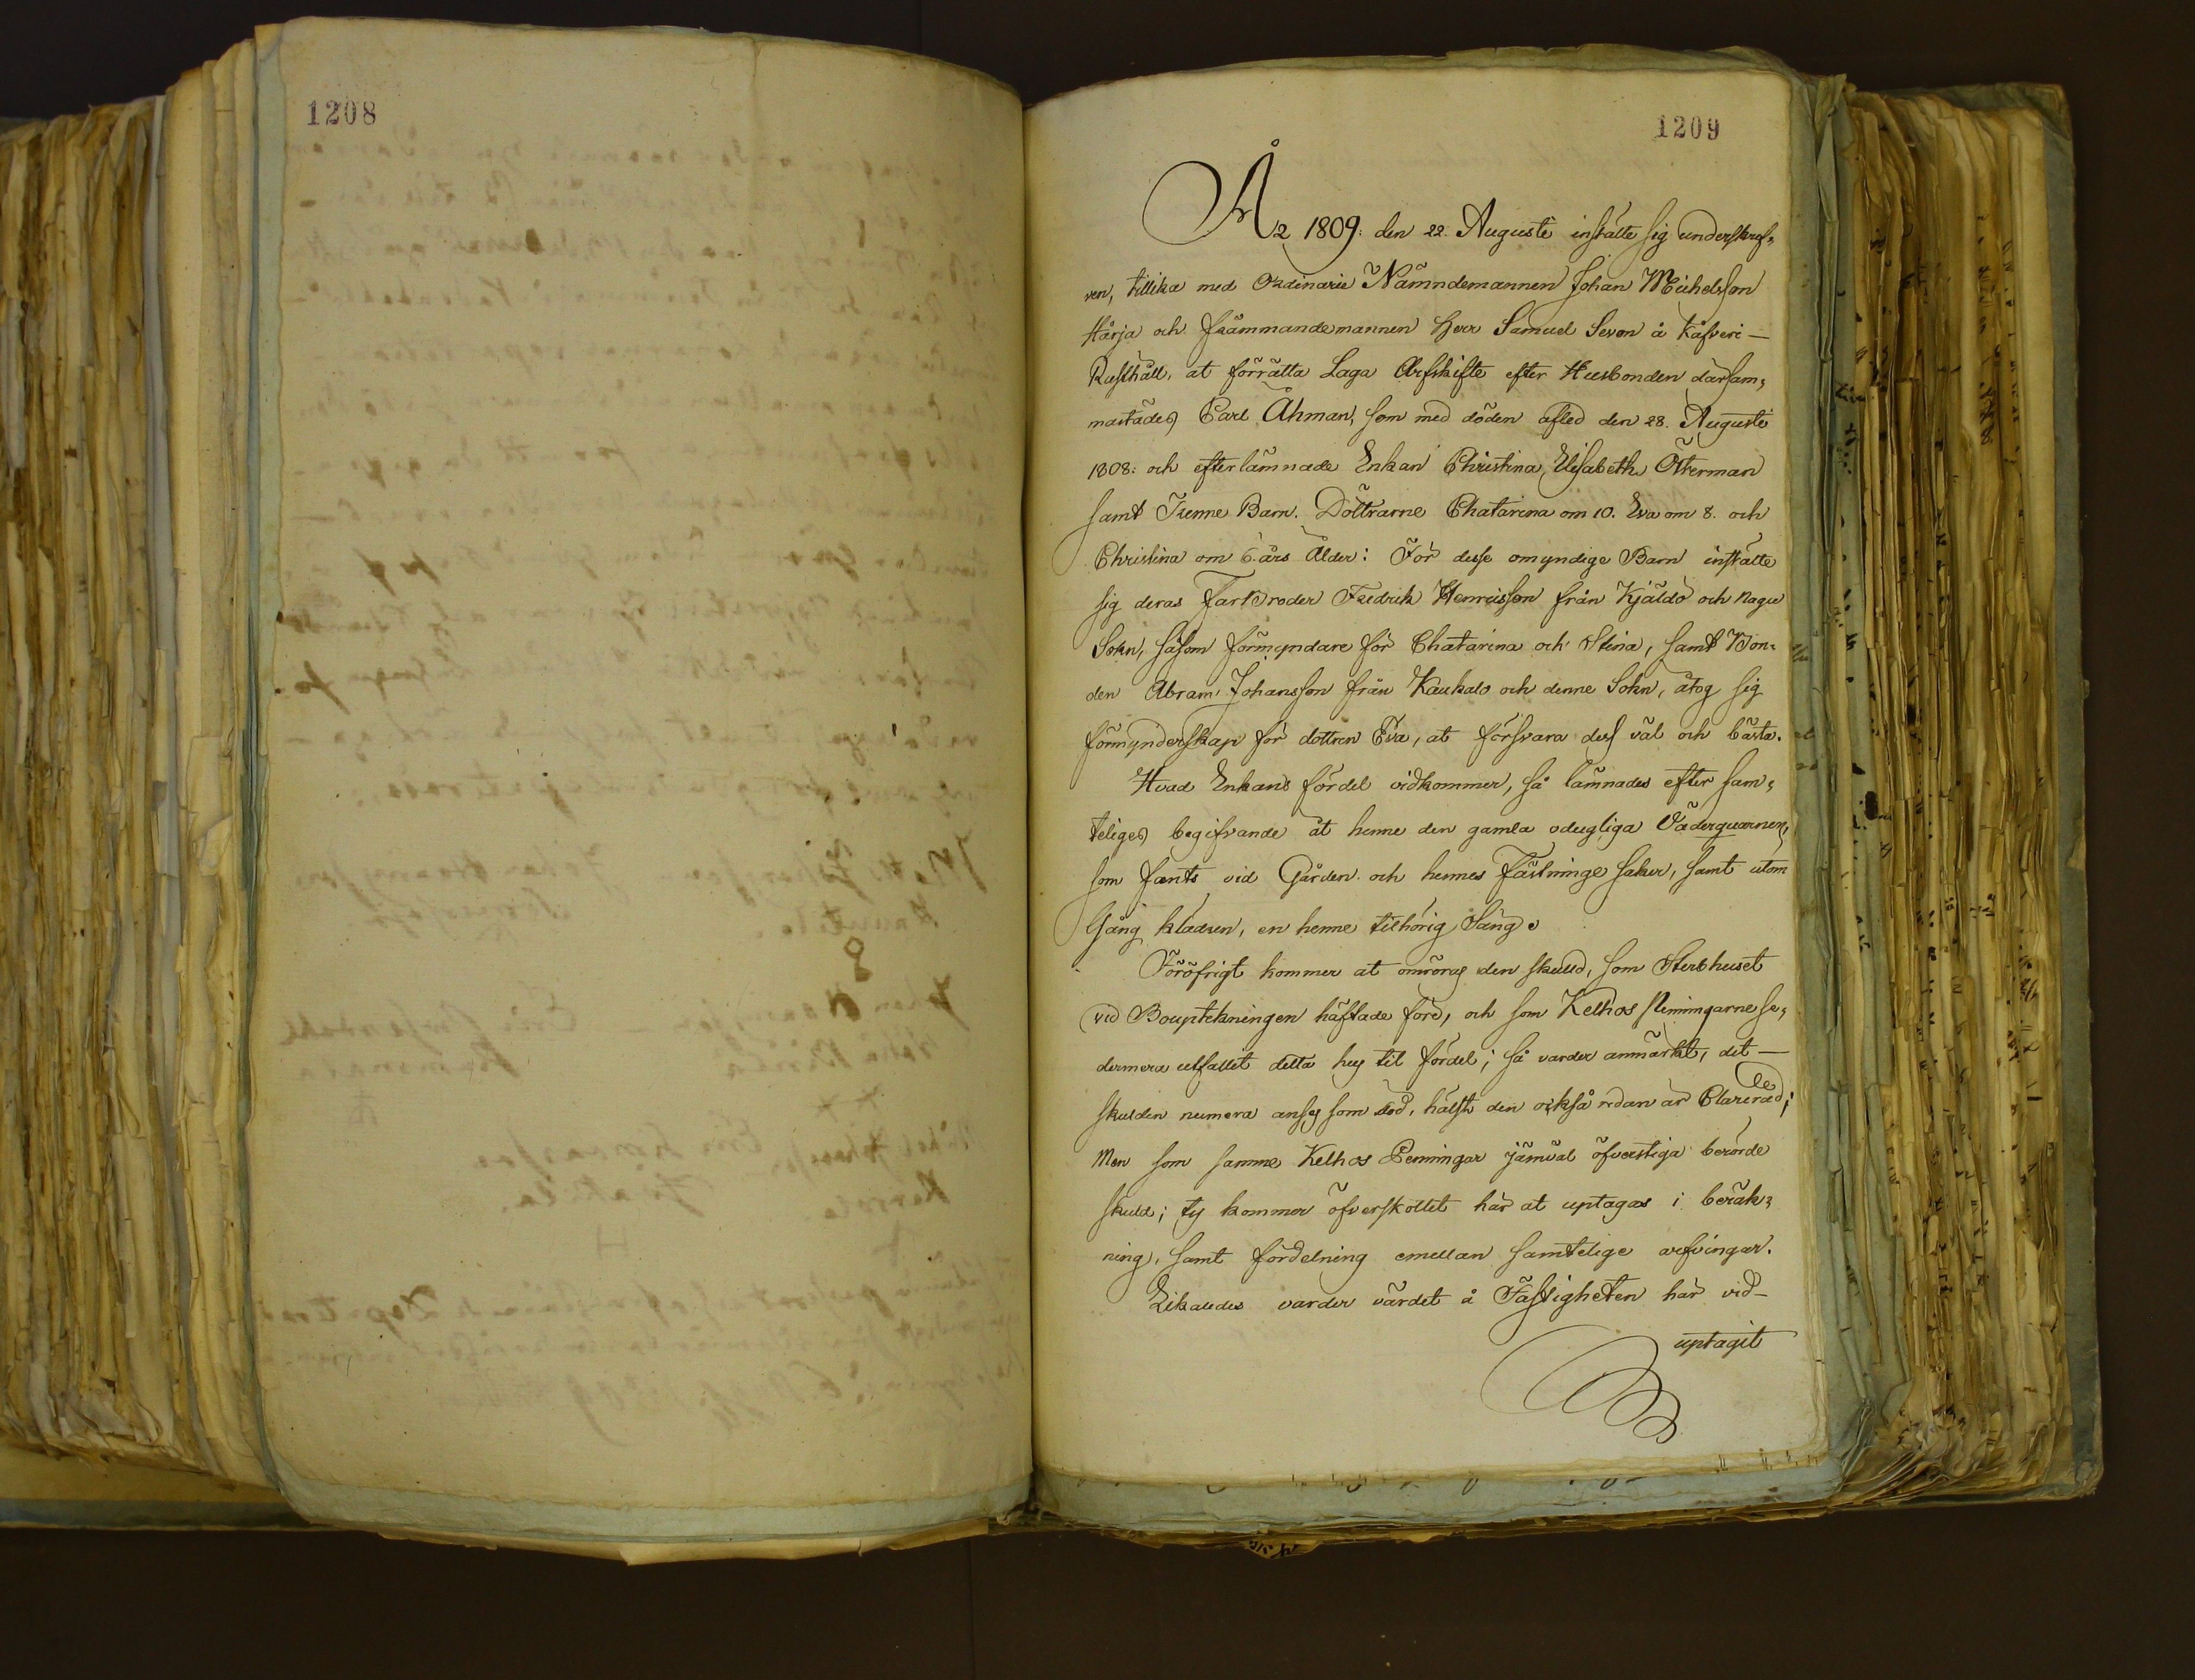 1208
1209
År 1809. den 22. Augusti instälte sig underskref,
ven, tillika med Ordinarie Nämndemannen Johan Michelsson
Härja och främmandemannen Herr Samuel Sevon å Kåfveri
Rusthåll, at förrätta Laga Arfskifte efter Husbonden därsam,
mastädes Carl Åhman, som med döden afled den 28. Augusti
1808: och efterlämnade Enkan Christina Elisabeth Österman
samt Trenne Barn. Döttrarne Chatarina om 10. Eva om 8. och
Christina om 6. års Ålder: För desse omyndige Barn instälte
sig deras Farbroder Fredrik Henricsson från Kjäldö och Nagu
Sokn, såsom förmyndare för Chatarina och Stina, samt Bon-
den Abram Johansson från Kaukalo och denne Sokn, åtog sig
förmynderskap för dottren Eva, at försvara dess väl och bästa.
Hvad Enkans fördel vidkommer, så lämnades efter sam,
teliges begifvande åt henne den gamla odugliga Väderquarnen,
som fants vid Gården och hennes Fästninge saker, samt utom
Gång kläden, en henne tilhörig Säng.
Föröfrigt kommer at omröras den skuld, som Sterbhuset
vid Bouptekningen häftade före, och som Kelhos Peningarne se,
dermera utfallit detta huj til fördel; så varder anmärkt, det
skulden numera anses som död, hälst den också redan är Clarerad;
Men som samme Kelhos Penningar jämväl öfverstiga berörde
skuld; ty kommer öfverskottet här at uptagas i beräk,
ning, samt fördelning emellan samtelige arfvingar.
Likaledes varder värdet å Fastigheten här vid
uptagit